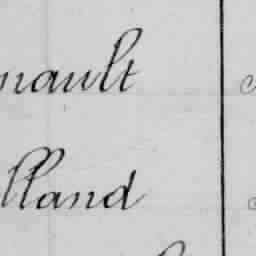 nault
lland